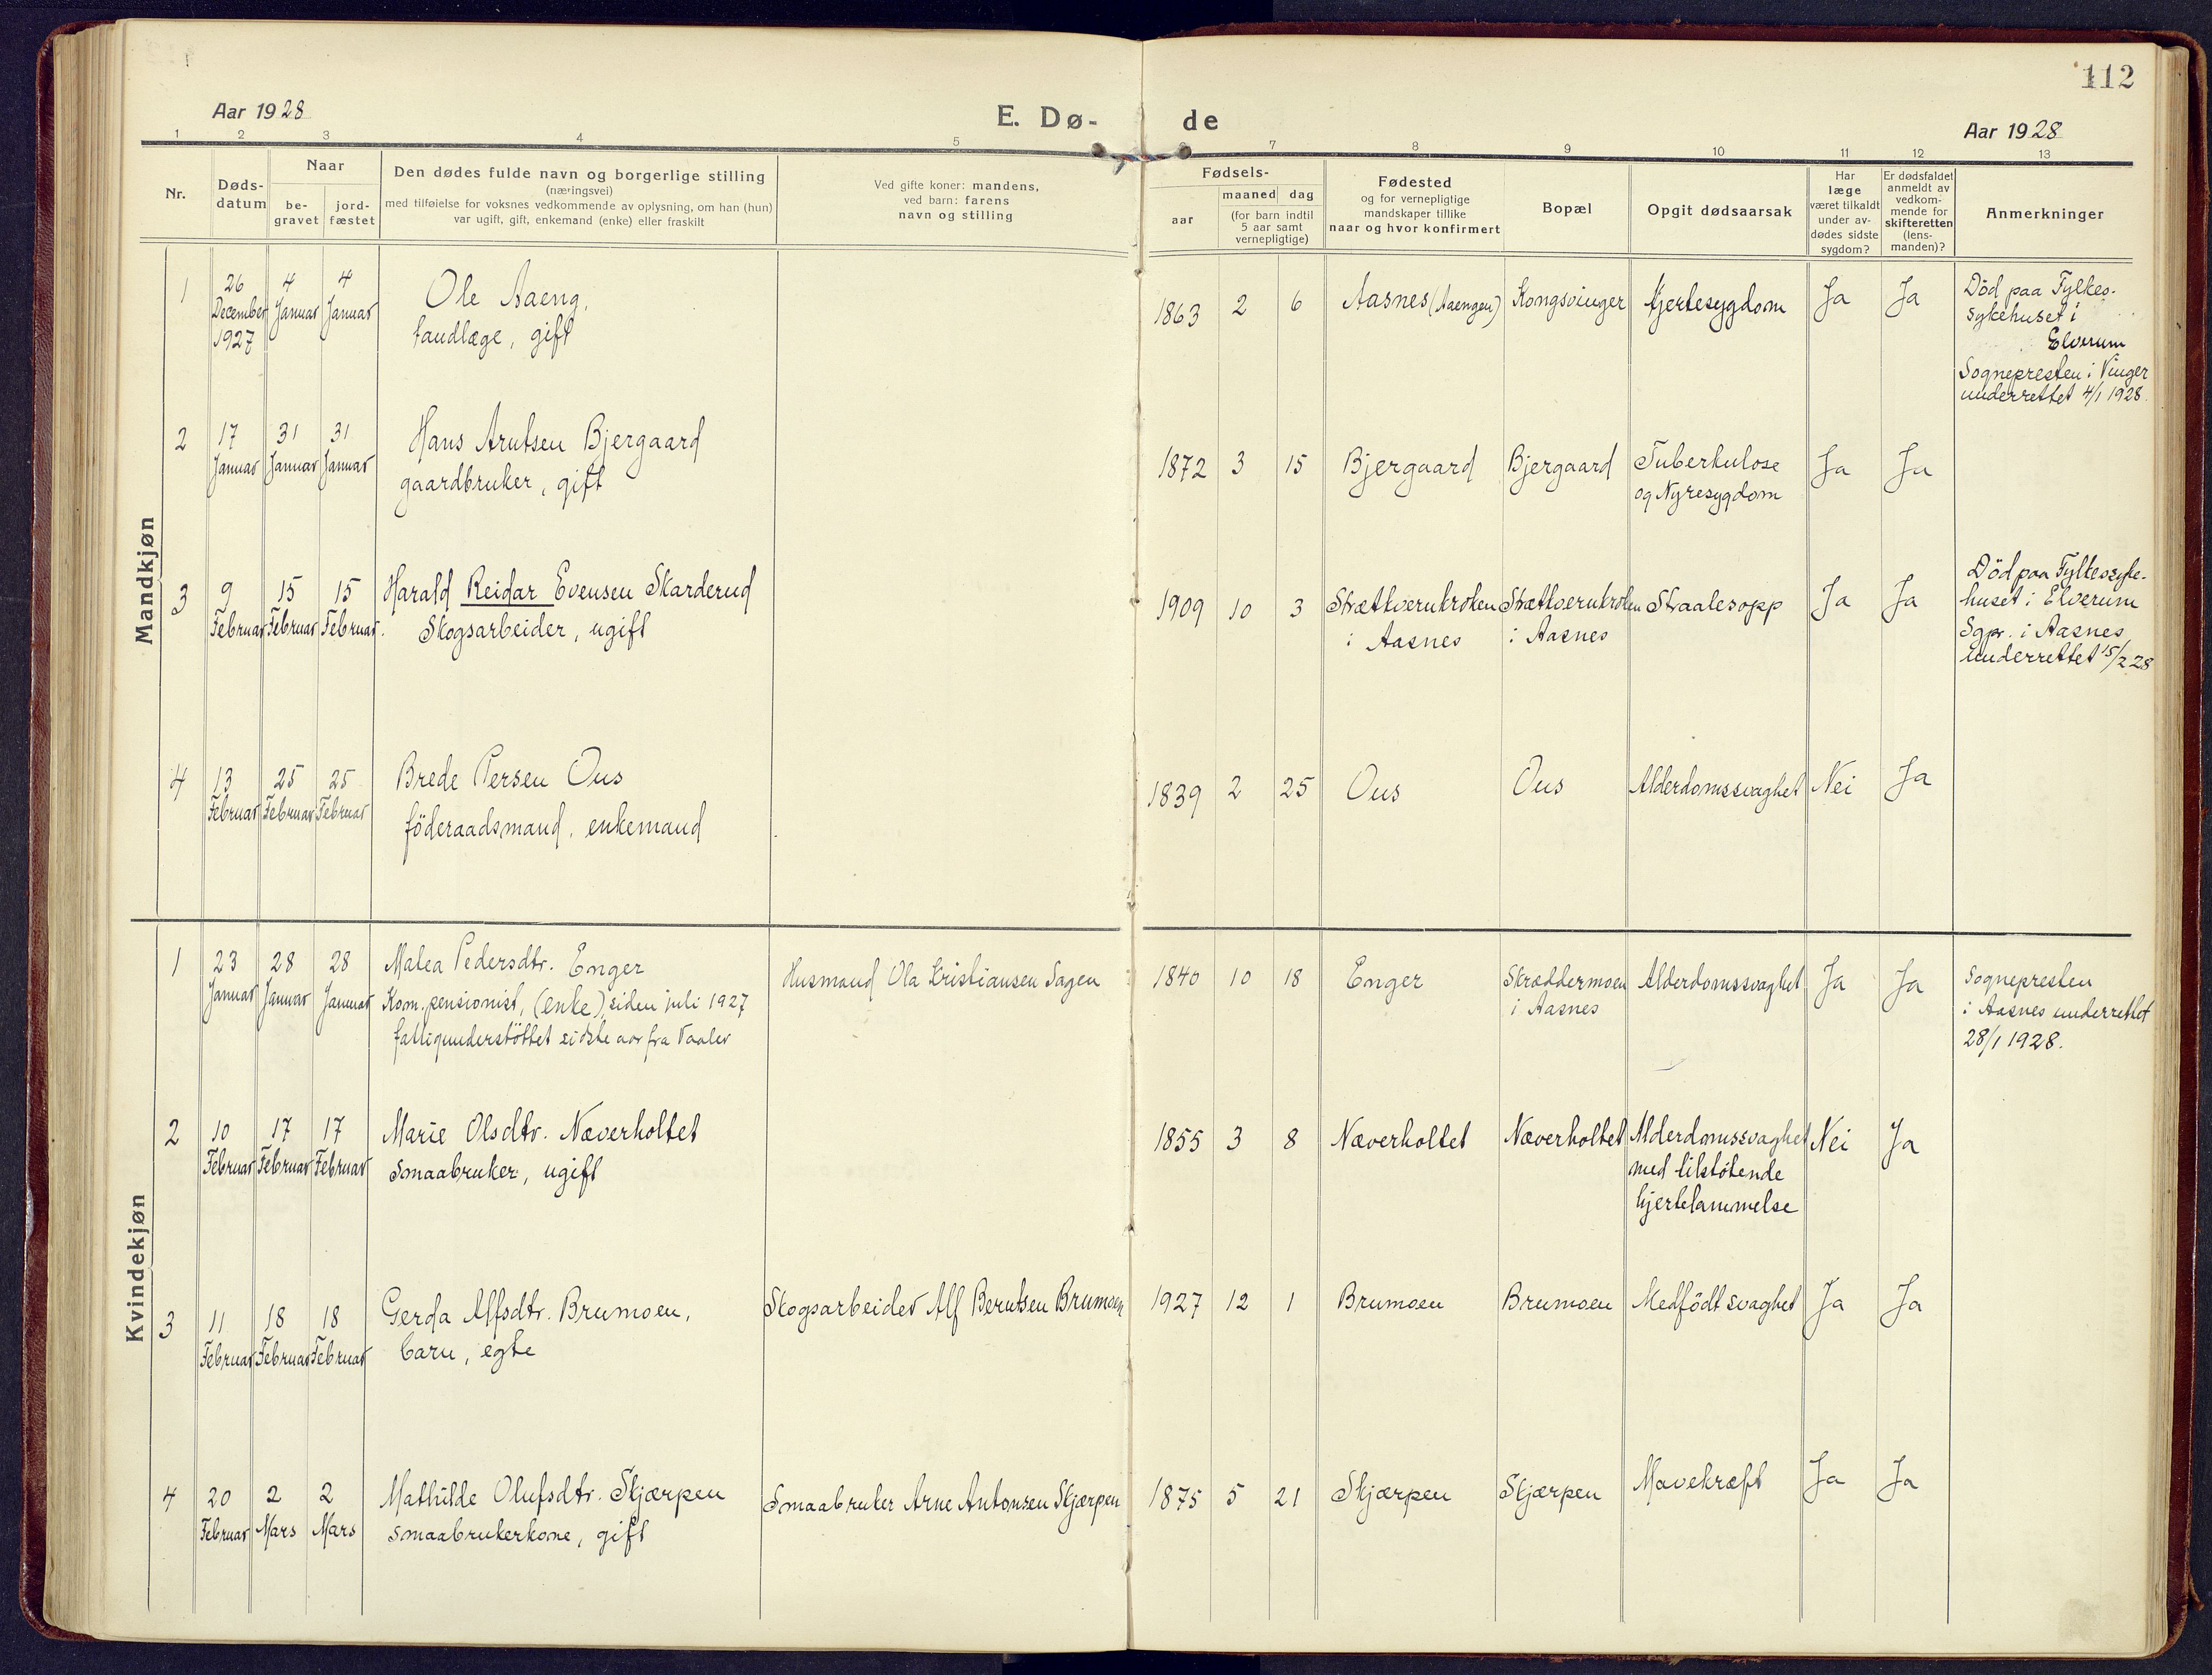 112
Aar 1928
E. Dø-
de
Aar 1928
1 2 3 4 5 7 8 9 10 11 12 13
Nr.
Døds-
datum
Naar
be-
gravet
jord-
fæstet
Den dødes fulde navn og borgerlige stilling
(næringsvei)
med tilføielse for voksnes vedkommende av oplysning, om han (hun)
var ugift, gift, enkemand (enke) eller fraskilt
Ved gifte koner: mandens,
ved barn: farens
navn og stilling
Fødsels-
aar
maaned dag
(for barn indtil
5 aar samt
vernepligtige)
Fødested
og for vernepligtige
mandskaper tillike
naar og hvor konfirmert
Bopæl
Opgit dødsaarsak
Har
læge
været tilkaldt
under av-
dødes sidste
sygdom?
Er dødsfaldet
anmeldt av
vedkom-
mende for
skifteretten
(lens-
manden)?
Anmerkninger
Mandkjøn
1
26
December
1927
4
Januar
4
Januar
Ole Aaeng,
tandlæge, gift
1863
2
6
Aasnes (Aaengen)
Kongsvinger
Hjertesygdom
Ja
Ja
Död paa Fylkes-
sykehuset i
Elverum
Sognepresten i Vinger
underrettet 4/1 1928.
2
17
Januar
31
Januar
31
Januar
Hans Arntsen Bjergaard
gaardbruker, gift
1872
3
15
Bjergaard
Bjergaard
Tuberkulose
og Nyresygdom
Ja
Ja
3
9
Februar
15
Februar
15
Februar.
Harald Reidar Evensen Skarderud
Skogsarbeider, ugift
1909
10
3
Strætkvernkroken
i Aasnes
Strætkvernkroken
i Aasnes
Straalesopp
Ja
Ja
Död paa Fylkessyke-
huset i Elverum
Sgpr. i Aasnes
underrettet 15/2 28
4
13
Februar
25
Februar
25
Februar
Brede Persen Ous
föderaadsmand, enkemand
1839
2
25
Ous
Ous
Alderdomssvaghet
Nei
Ja
Kvindekjøn
1
23
Januar
28
Januar
28
Januar
Malea Pedersdtr. Enger
Kom. pensionist, (enke), siden juli 1927
fattigunderstöttet sidste aar fra Vaaler
Husmand Ola Kristiansen Sagen
1840
10
18
Enger
Skræddermoen
i Aasnes
Alderdomssvaghet
Ja
Ja
Sognepresten
i Aasnes underrettet
28/1 1928.
2
10
Februar
17
Februar
17
Februar
Marie Olsdtr. Næverholtet
smaabruker, ugift
1855
3
8
Næverholtet
Næverholtet
Alderdomssvaghet
med tilstötende
hjertelammelse
Nei
Ja
3
11
Februar
18
Februar
18
Februar
Gerda Alfsdtr. Brumoen,
barn, egte
Skogsarbeider Alf Berntsen Brumoen
1927
12
1
Brumoen
Brumoen
Medfödt svaghet
Ja
Ja
4
20
Februar
2
Mars
2
Mars
Mathilde Olufsdtr. Skjærpen
smaabrukerkone, gift
Smaabruker Arne Antonsen Skjærpen
1875
5
21
Skjærpen
Skjærpen
Mavekræft
Ja
Ja